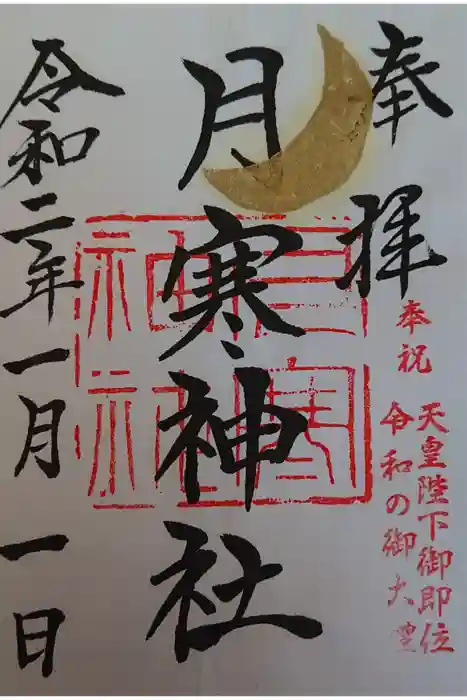 奉拝
奉祝
天皇陛下御即位
令和の御大典
月寒神社
月寒神社
令和二年一月一日